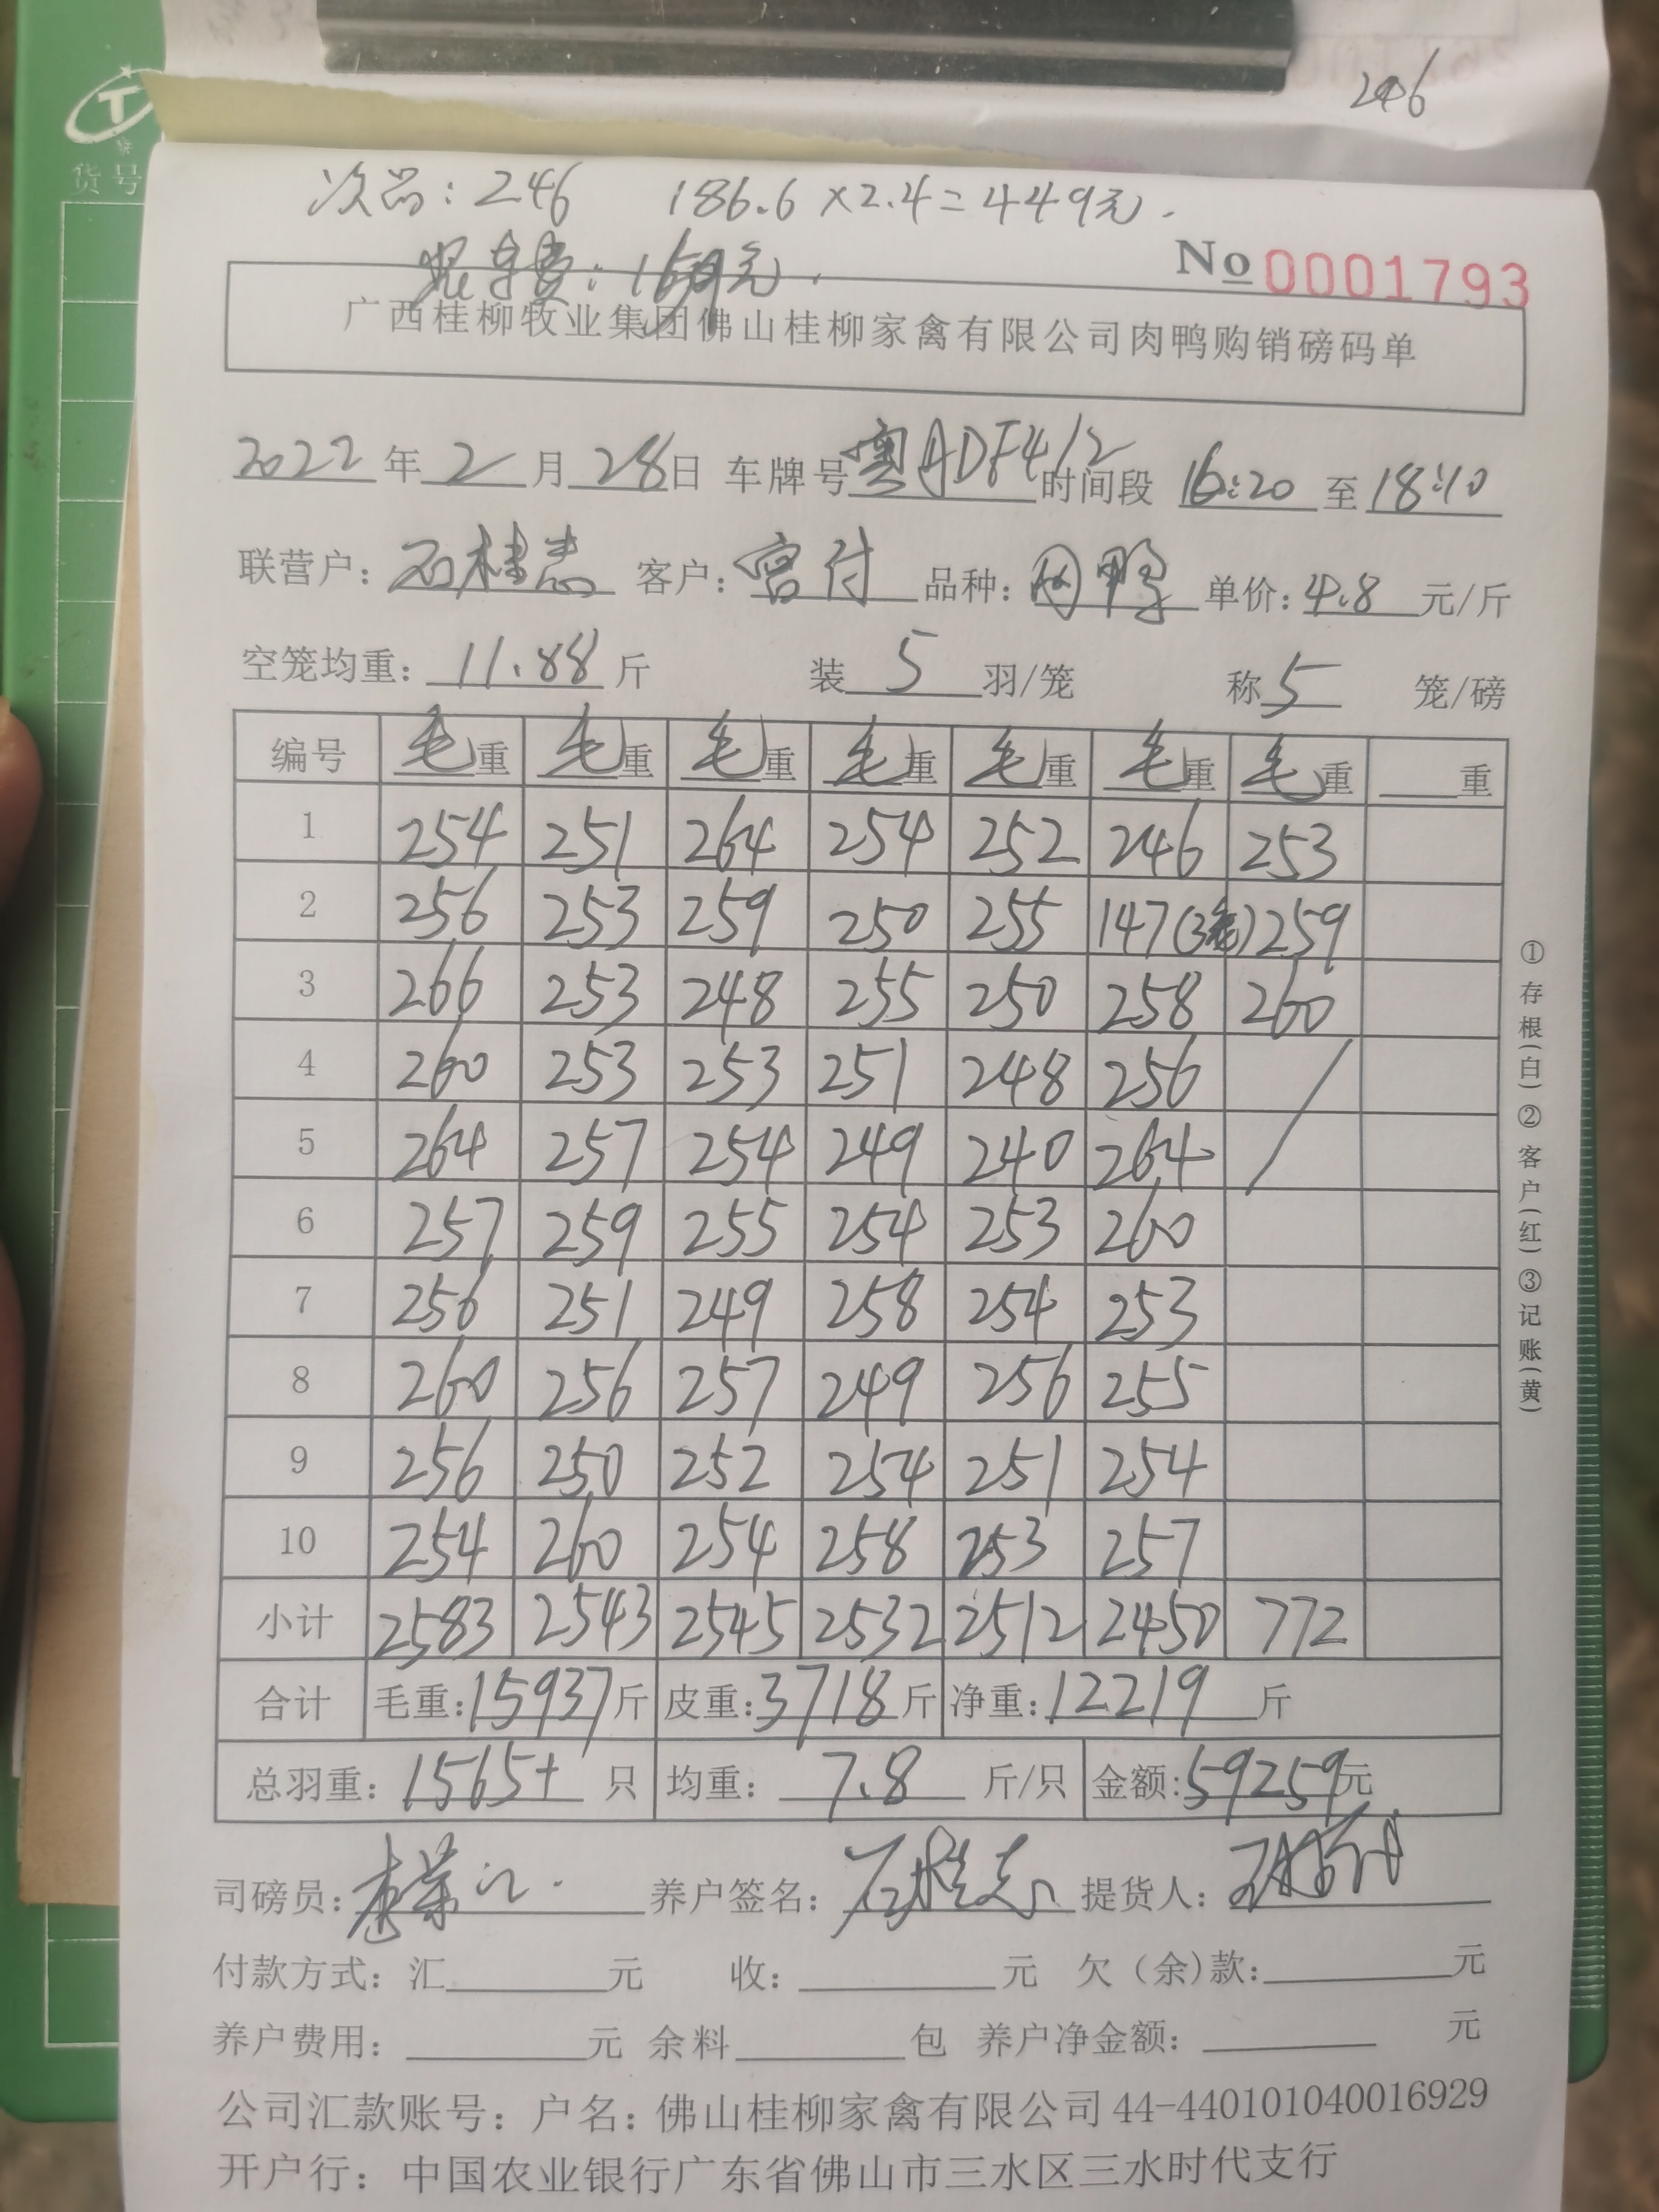 246
货号
次品：246 186.6×2.4=449元.
No 0001793
广西桂柳牧业集团佛山桂柳家禽有限公司肉鸭购销磅码单
2022年2月28日 车牌号粤ADF412时间段 16:20 至18:10
联营户：石桂志 客户：宫付 品种：肉鸭 单价：4.8 元/斤
空笼均重：11.88 斤 装5羽/笼 称5 笼/磅
编号 毛重 毛重 毛重 毛重 毛重 毛重 毛重 重
1 254 251 264 254 252 246 253
2 256 253 259 250 255 147(3笼) 259
3 266 253 248 255 250 258 260
4 260 253 253 251 248 256
5 264 257 254 249 240 264
6 257 259 255 254 253 260
7 256 251 249 258 254 253
8 260 256 257 249 256 255
9 256 250 252 254 251 254
10 254 260 254 258 253 257
小计 2583 2543 2545 2532 2512 2450 772
合计 毛重：15937斤 皮重：3718斤 净重：12219斤
总羽重：1565+ 只 均重：7.8 斤/只 金额：59259元
司磅员： 养户签名：石桂志 提货人：
付款方式：汇 元 收： 元 欠（余）款： 元
养户费用： 元 余料 包 养户净金额： 元
公司汇款账号：户名：佛山桂柳家禽有限公司44-440101040016929
开户行：中国农业银行广东省佛山市三水区三水时代支行
①存根(白)②客户(红)③记账(黄)